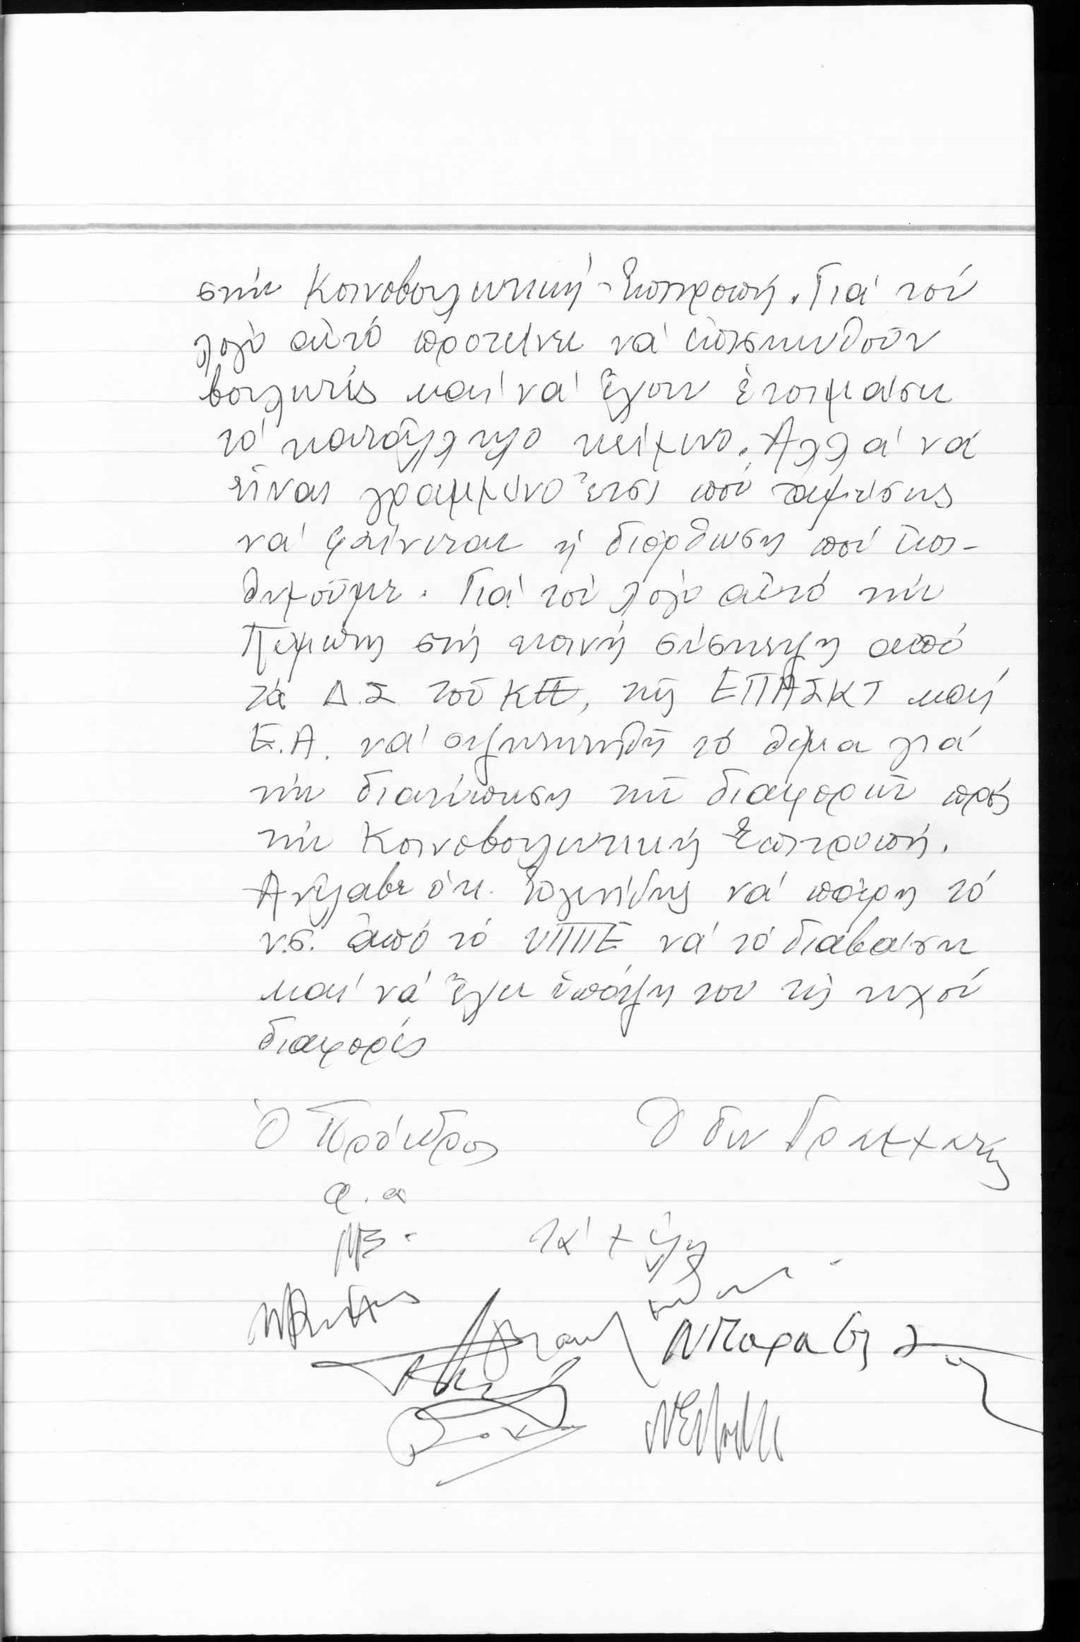 στήν Κοινοβουλευτική Ἐπιτροπή. Γιά τόν
λόγο αὐτό προτείνει νά ἐπισκευθοῦν
βουλευτές καί νά ἔχουν ἑτοιμάσει
τό κατάλληλο κείμενο. Ἀλλά νά
εἶναι γραμμένο ἔτσι πού
νά φαίνεται ἡ διόρθωση πού ἐπι-
θυμοῦμε. Γιά τόν λόγο αὐτό τήν
Πέμπτη στή κοινή σύσκεψη ἀπό
τά Δ.Σ τοῦ ΚΠΕ, τῆς ΕΠΑΣΚΤ καί
Ε.Α. νά συζητηθῆ τό θέμα γιά
τήν διατύπωση τῶν διαφορῶν πρός
τήν Κοινοβουλευτική Ἐπιτροπή.
Ἀνέλαβε ὁ κ. νά πάρη τό
ν.σ. ἀπό τό ΥΠΠΕ νά τό διαβάσει
καί νά ἔχει ὑπόψη του τίς τυχόν
διαφορές
Ὁ Πρόεδρος Ὁ Γεν Γραμματεύς
α.α
Τά μέλη